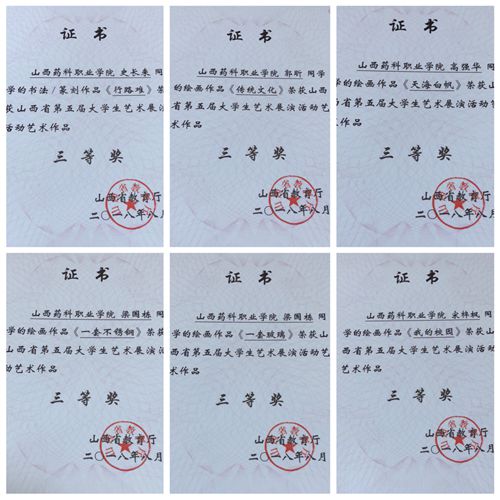 证书
山西药科职业学院 史长来 同
学的书法/篆刻作品《行路难》荣
获山西省第五届大学生艺术展演
活动艺术作品
三等奖
山西省教育厅
二〇一八年八月
证书
山西药科职业学院 郭昕 同学
的绘画作品《传统文化》荣获山
西省第五届大学生艺术展演活动
艺术作品
三等奖
山西省教育厅
二〇一八年八月
证书
山西药科职业学院 高强华 同
学的绘画作品《天海白帆》荣获
山西省第五届大学生艺术展演活
动艺术作品
三等奖
山西省教育厅
二〇一八年八月
证书
山西药科职业学院 梁国栋 同
学的绘画作品《一套不锈钢》荣获
山西省第五届大学生艺术展演活动
艺术作品
三等奖
山西省教育厅
二〇一八年八月
证书
山西药科职业学院 梁国栋 同
学的绘画作品《一套玻璃》荣获
山西省第五届大学生艺术展演活动
艺术作品
三等奖
山西省教育厅
二〇一八年八月
证书
山西药科职业学院 宋梓枫 同
学的绘画作品《我的校园》荣获山
西省第五届大学生艺术展演活动
艺术作品
三等奖
山西省教育厅
二〇一八年八月